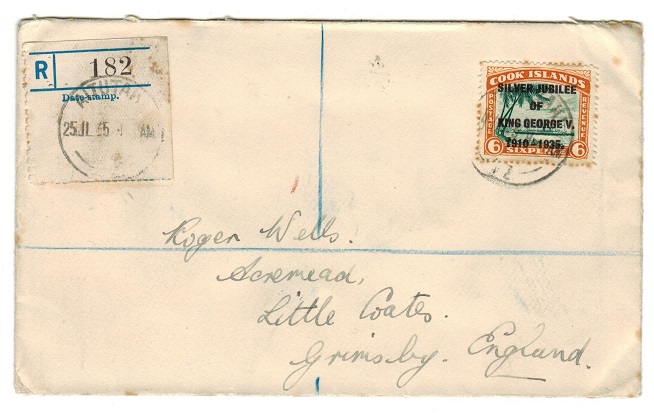 R 182
Date-stamp.
AITUTAKI
25.11.35
AM
COOK ISLANDS
POSTAGE
REVENUE
SILVER JUBILEE
OF
KING GEORGE V.
1910-1935.
6 SIXPENCE 6
NZ
Roger Wells.
Acremead,
Little Coates.
Grimsby. England.